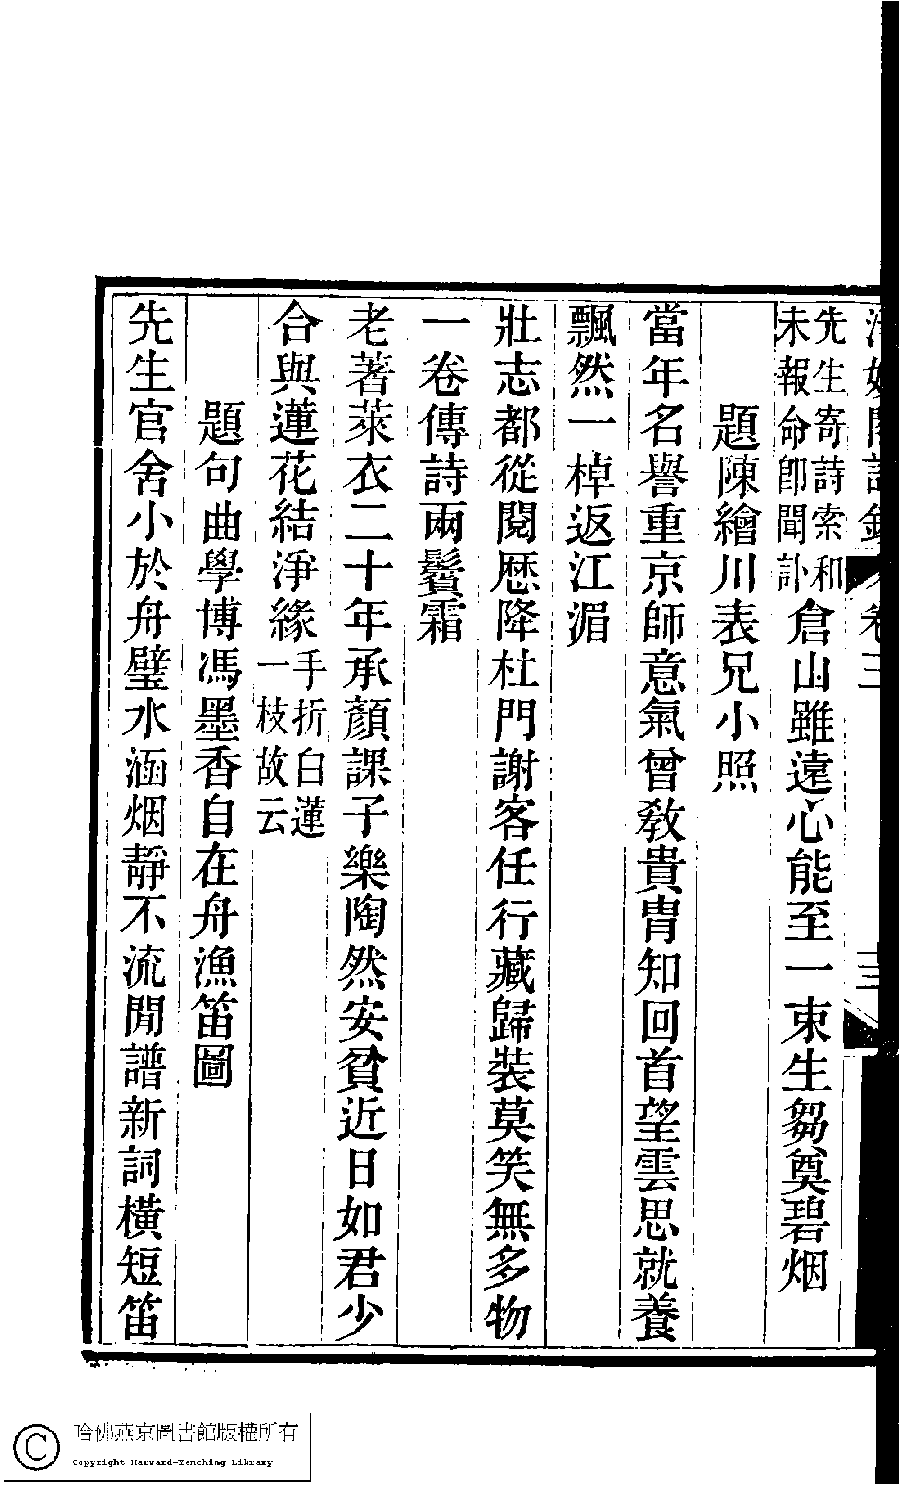 卷三　三
先生寄詩索和未報命卽聞訃倉山雖遠心能至一束生芻奠碧烟
題陳繪川表兄小照
當年名譽重京師意氣曾教貴胄知回首望雲思就養
飄然一棹返江湄
壯志都從閱歷降杜門謝客任行藏歸裝莫笑無多物
一卷傳詩兩鬢霜
老著萊衣二十年承顏課子樂陶然安貧近日如君少
合與蓮花結淨緣手折白蓮一枝故云
題句曲學博馮墨香自在舟漁笛圖
先生官舍小於舟璧水涵烟靜不流閒譜新詞橫短笛
哈佛燕京圖書館版權所有
Copyright Harvard-Yenching Library